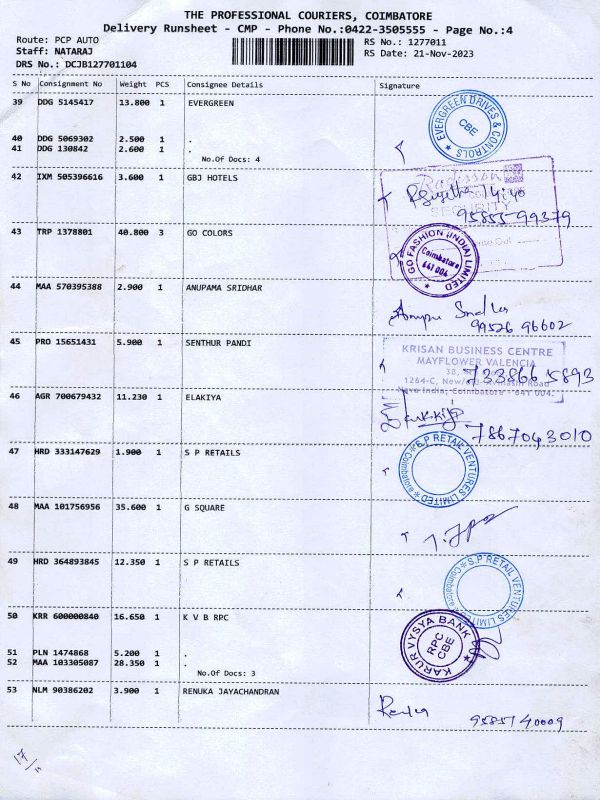 THE PROFESSIONAL COURIERS, COIMBATORE
Delivery Runsheet - CMP - Phone No.:0422-3505555 - Page No.:4
Route: PCP AUTO RS No.: 1277011
Staff: NATARAJ RS Date: 21-Nov-2023
DRS No.: DCJB127701104
S No Consignment No Weight PCS Consignee Details Signature
39 DDG 5145417 13.800 1 EVERGREEN
EVERGREEN DRIVES & CONTROLS
CBE
40 DDG 5069302 2.500 1 .
41 DDG 130842 2.600 1 .
No.Of Docs: 4
42 IXM 505396616 3.600 1 GBJ HOTELS
Radisson
14:40
SECURITY
95855-99379
43 TRP 1378801 40.800 3 GO COLORS
GO FASHION (INDIA) LIMITED
Coimbatore
641 004
Out
44 MAA 570395388 2.900 1 ANUPAMA SRIDHAR
99526 96602
45 PRO 15651431 5.900 1 SENTHUR PANDI
KRISAN BUSINESS CENTRE
MAYFLOWER VALENCIA
733866 5893
1264-C, Road
Nava India, Coimbatore - 641 004.
46 AGR 700679432 11.230 1 ELAKIYA
7867043010
47 HRD 333147629 1.900 1 S P RETAILS
S.P RETAIL VENTURES LIMITED
Coimbatore
48 MAA 101756956 35.600 1 G SQUARE
49 HRD 364893845 12.350 1 S P RETAILS
S.P RETAIL VENTURES LIMITED
Coimbatore
50 KRR 600000840 16.650 1 K V B RPC
KARUR VYSYA BANK
RPC
CBE
51 PLN 1474868 5.200 .
52 MAA 103305087 28.350 1 .
No.Of Docs: 3
53 NLM 90386202 3.900 1 RENUKA JAYACHANDRAN
9585140009